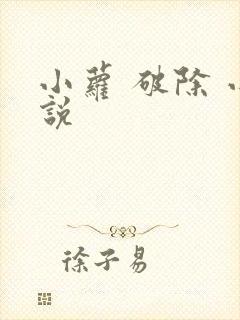 小蘿 破除
說
徐子易